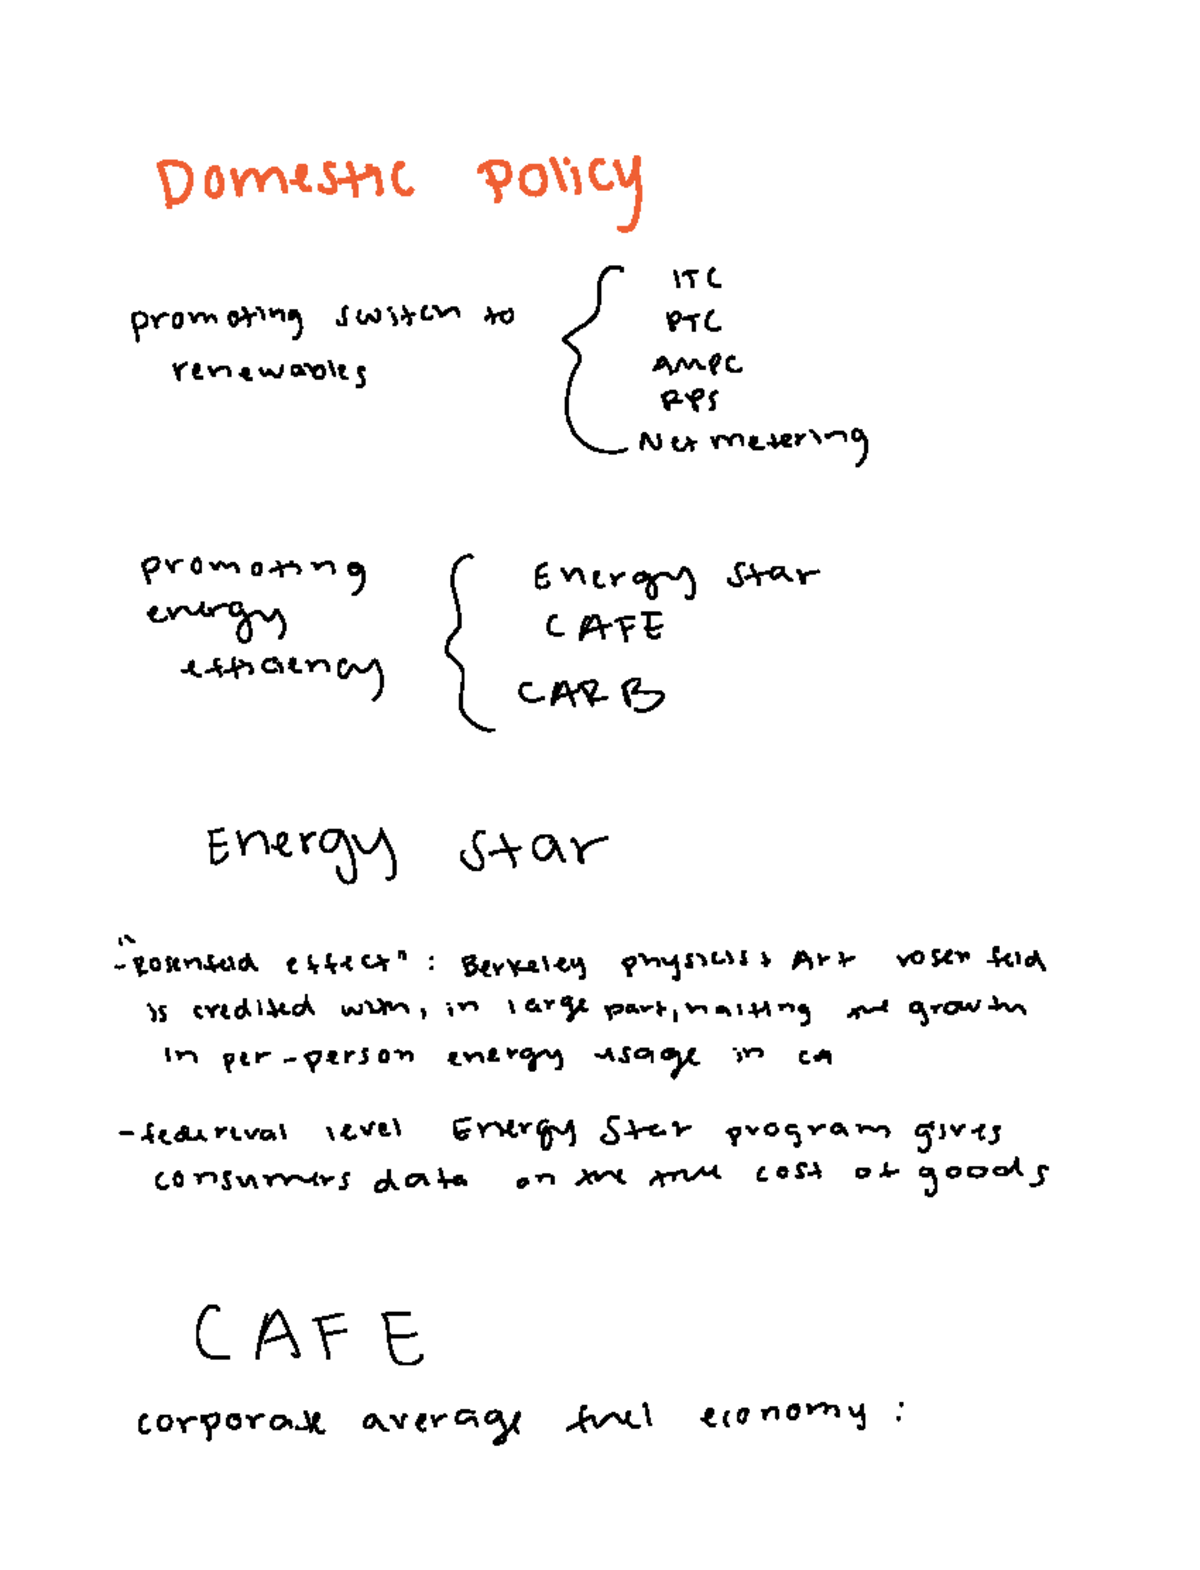 Domestic Policy
promoting switch to
renewables
ITC
PTC
AMPC
RPS
Net metering
promoting
energy
efficiency
Energy Star
CAFE
CARB
Energy Star
- "Rosenfeld effect" : Berkeley physicist Art rosenfeld
is credited with, in large part, halting the growth
in per-person energy usage in CA
- federeval level Energy Star program gives
consumers data on the true cost of goods
CAFE
corporate average fuel economy :